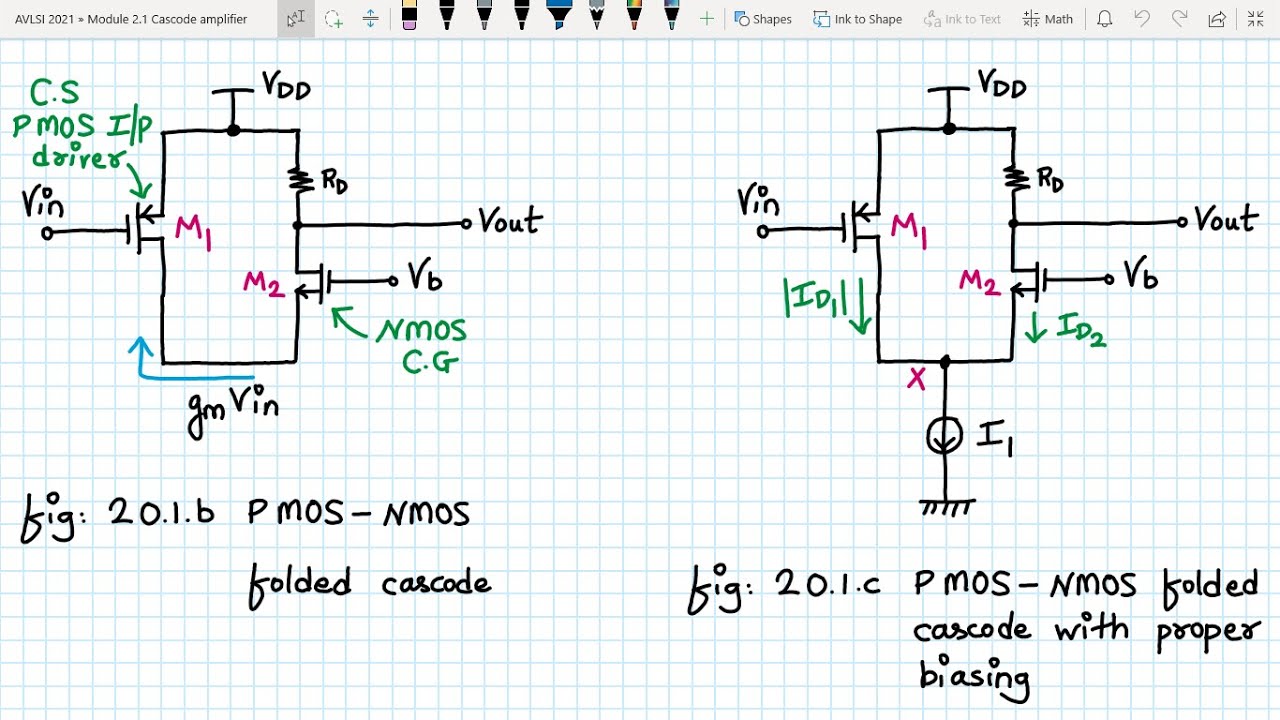 AVLSI 2021 » Module 2.1 Cascode amplifier
Shapes
Ink to Shape
Ink to Text
Math
C.S
PMOS I/P
driver
VDD
RD
Vin
M1
Vout
M2
Vb
NMOS
C.G
gmVin
fig: 20.1.b PMOS-NMOS
folded cascode
VDD
RD
Vin
M1
Vout
|ID1|
M2
Vb
ID2
X
I1
fig: 20.1.c PMOS-NMOS folded
cascode with proper
biasing